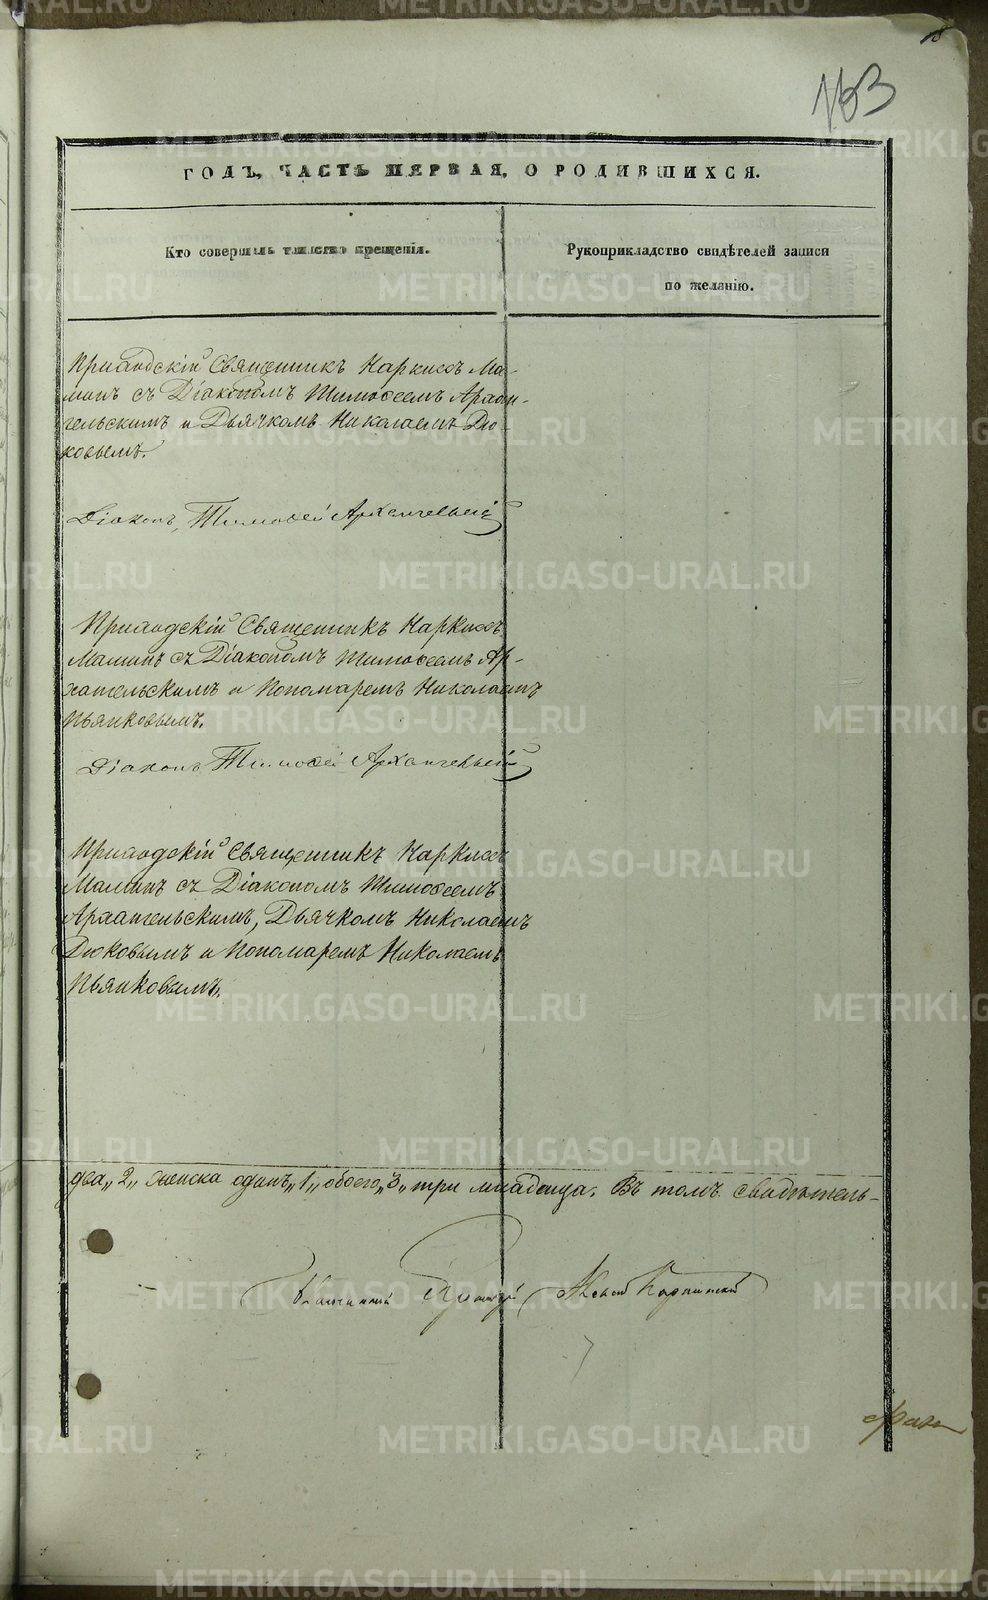 163
ГОДЪ, ЧАСТЬ ПЕРВАЯ, О РОДИВШИХСЯ.
Кто совершалъ таинство крещенія.
Рукоприкладство свидѣтелей записи
по желанію.
Приходскій Священникъ Наркисъ Ма-
минъ съ Діакономъ Тимоѳеемъ Архан-
гельскимъ и Дьячкомъ Николаемъ Дю-
ковымъ.
Діаконъ Тимоѳей Архангельскій
Приходскій Священникъ Наркисъ
Маминъ съ Діакономъ Тимоѳеемъ Ар-
хангельскимъ и Пономаремъ Николаемъ
Пьянковымъ.
Діаконъ Тимоѳей Архангельскій
Приходскій Священникъ Наркисъ
Маминъ съ Діакономъ Тимоѳеемъ
Архангельскимъ, Дьячкомъ Николаемъ
Дюковымъ и Пономаремъ Николаемъ
Пьянковымъ.
два „2„ женска одинъ „1„ обоего „3„ три младенца. Въ томъ свидѣтель-
METRIKI.GASO-URAL.RU